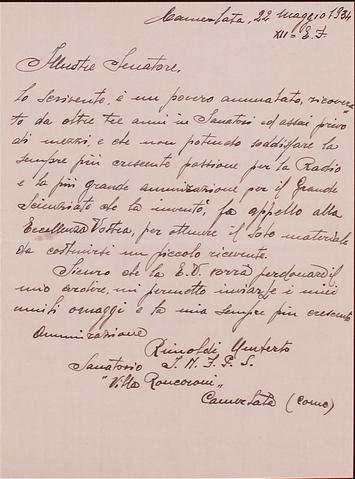 Camerlata, 22 maggio 1934
XII° E.F.
Illustre Senatore,
Lo scrivente, è un povero ammalato, ricovera=
to da oltre tre anni in Sanatori ed assai privo
di mezzi, e che non potendo soddisfare la
sempre più crescente passione per la Radio
e la più grande ammirazione per il Grande
Scienziato che la inventò, fa appello alla
Eccellenza Vostra, per ottenere il solo materiale
da costruirsi un piccolo ricevente.
Sicuro che la E.V. vorrà perdonare il
mio ardire, mi permetto inviarle i miei
umili omaggi e la mia sempre più crescente
ammirazione
Rinoldi Umberto
Sanatorio I.N.F.P.S.
"Villa Roncoroni"
Camerlata (Como)